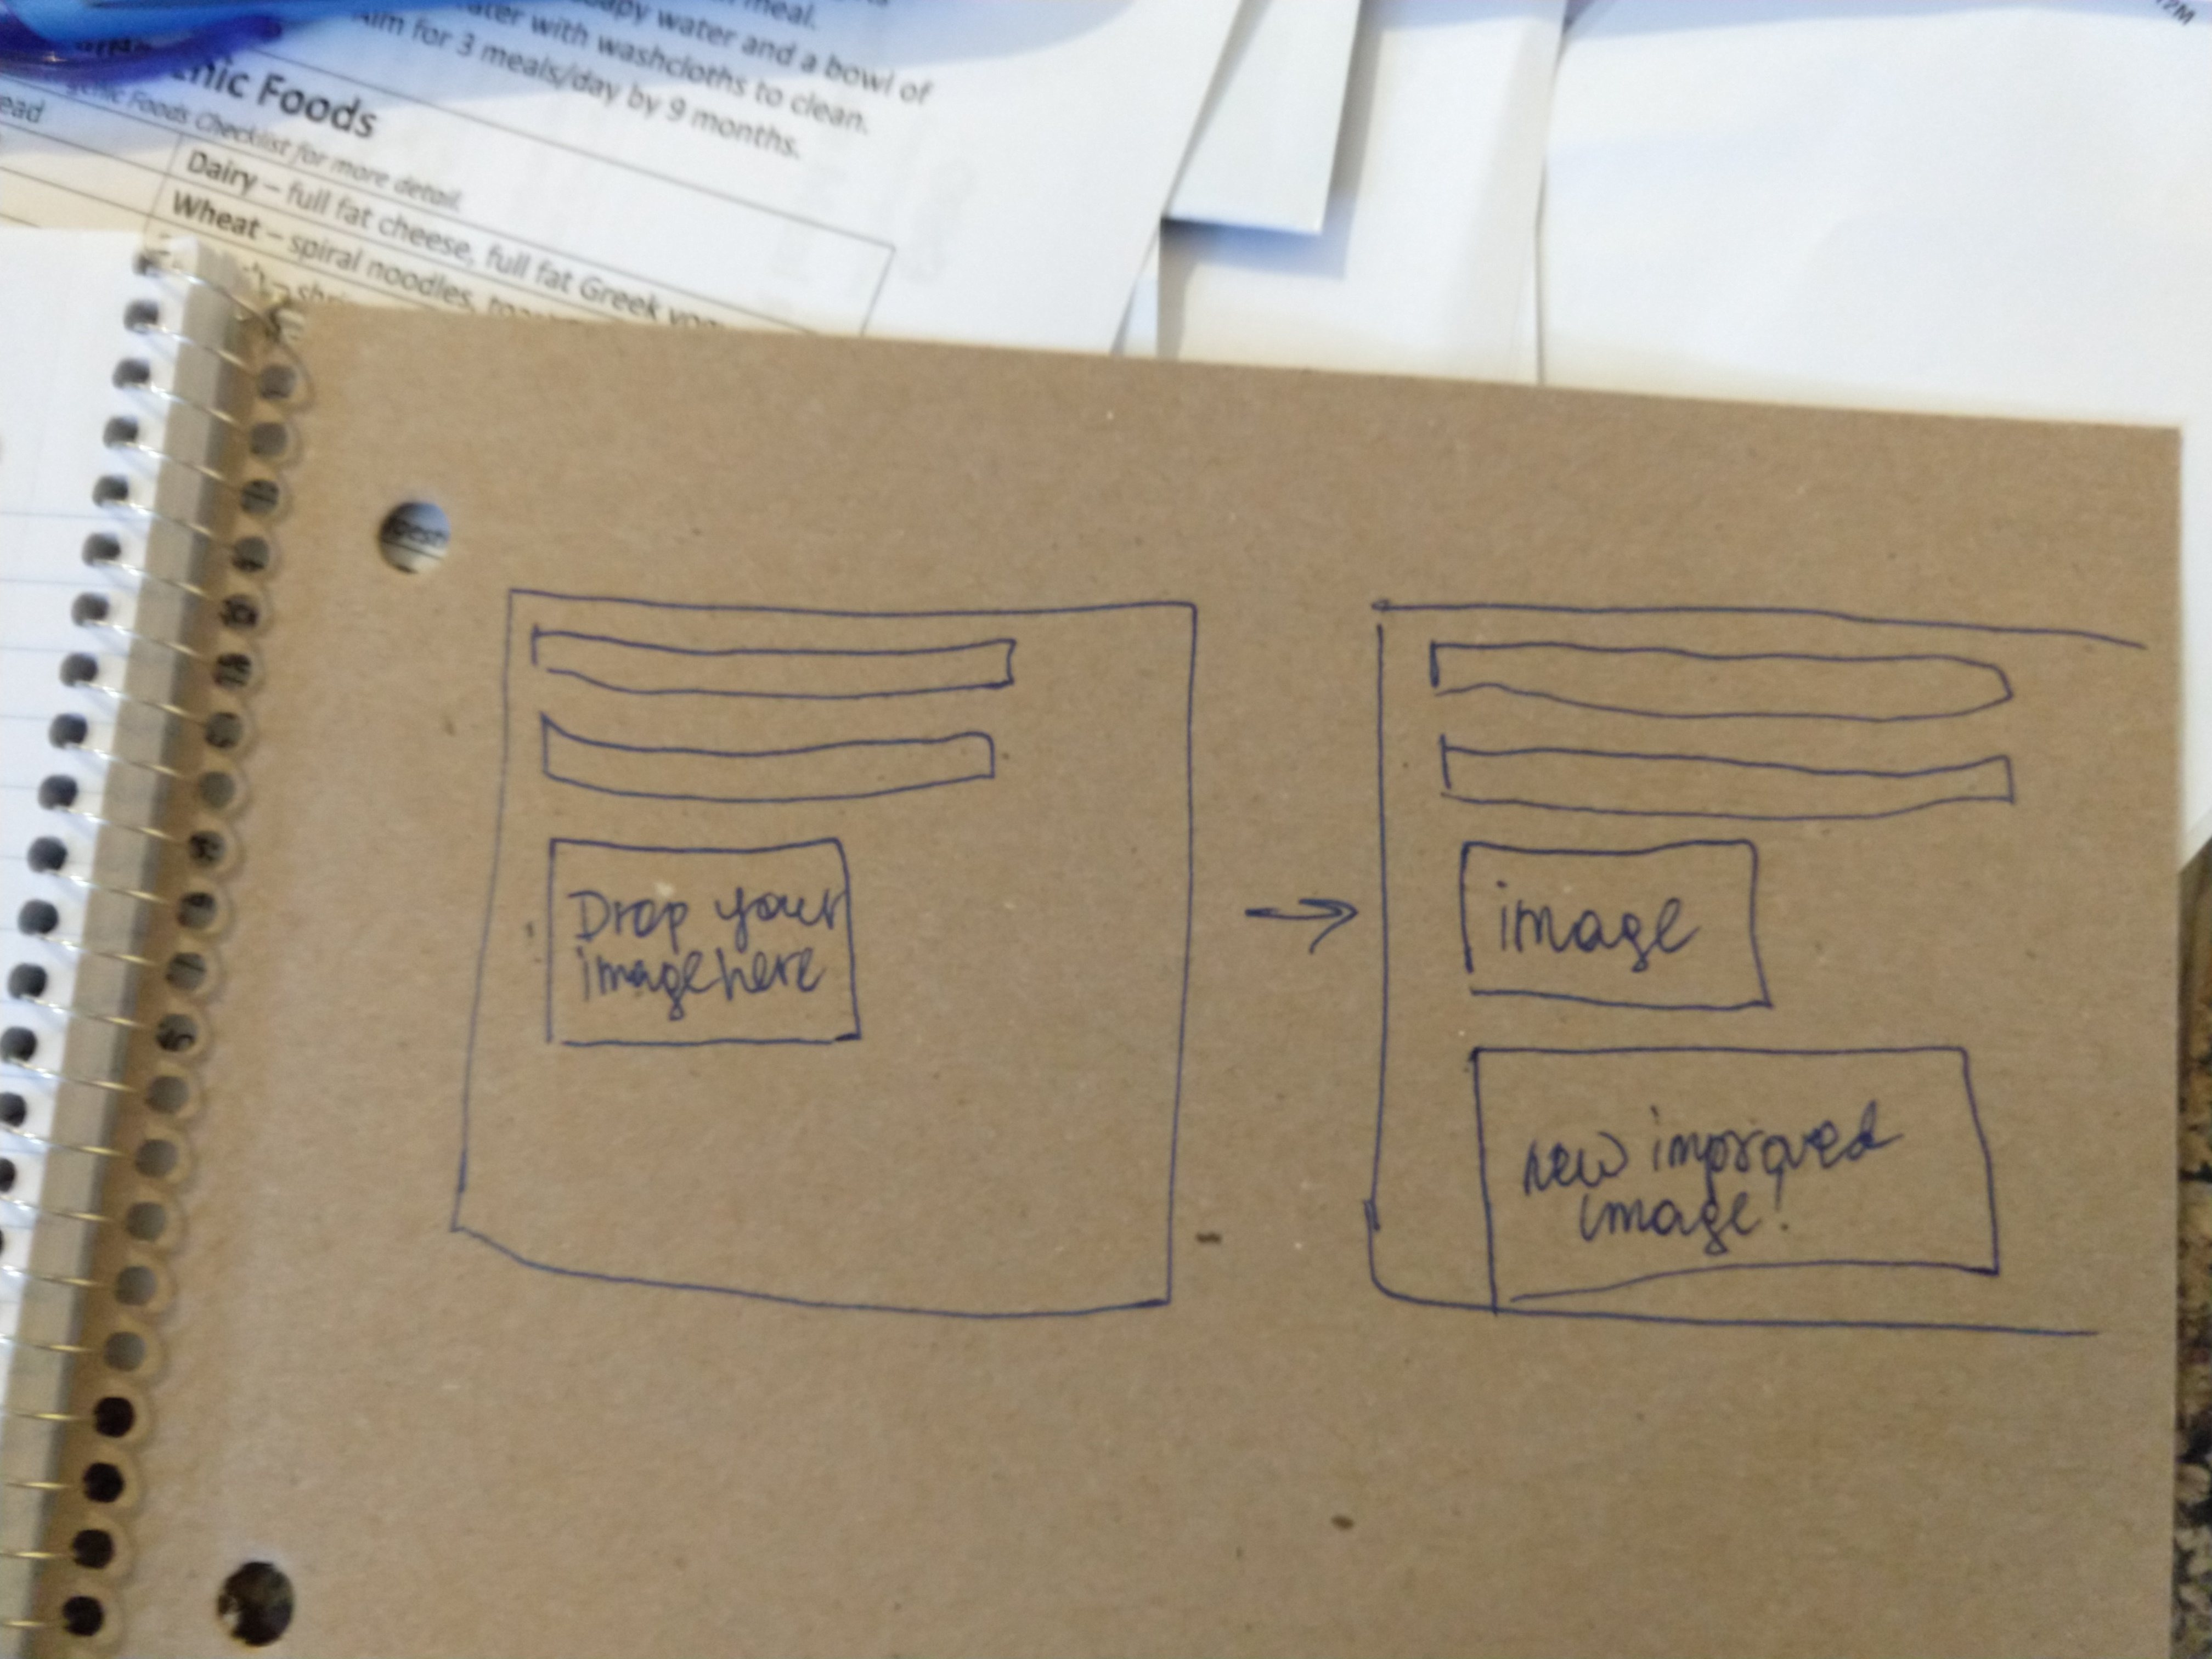 meal.
soapy water and a bowl of
water with washcloths to clean.
Aim for 3 meals/day by 9 months.
Foods
Foods Checklist for more detail
Dairy – full fat cheese, full fat Greek
Wheat – spiral noodles,
Drop your
image here
image
new improved
image!